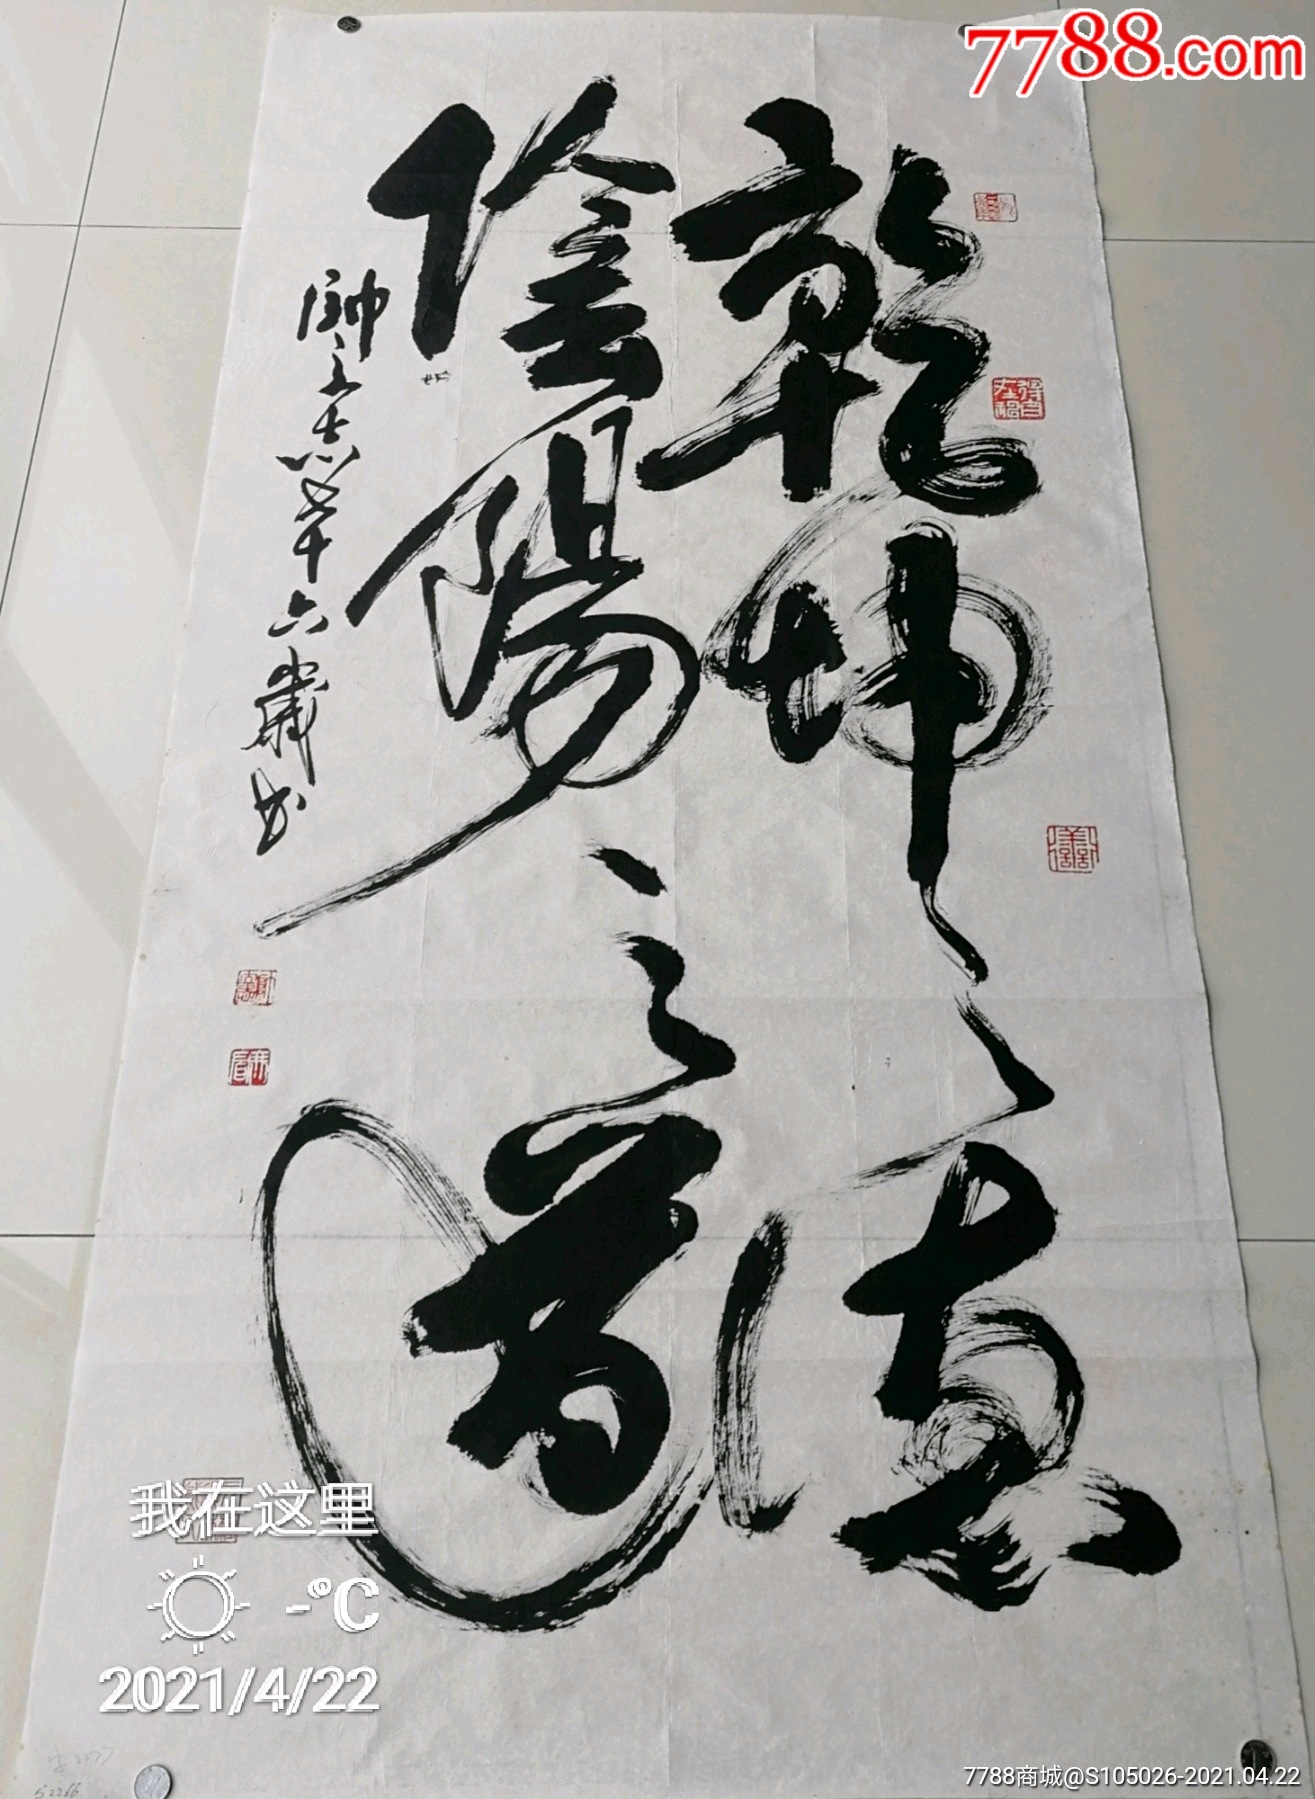 7788.com
乾坤之德
陰陽之道
七十六歲书
我在这里
-°C
2021/4/22
7788商城@S105026-2021.04.22